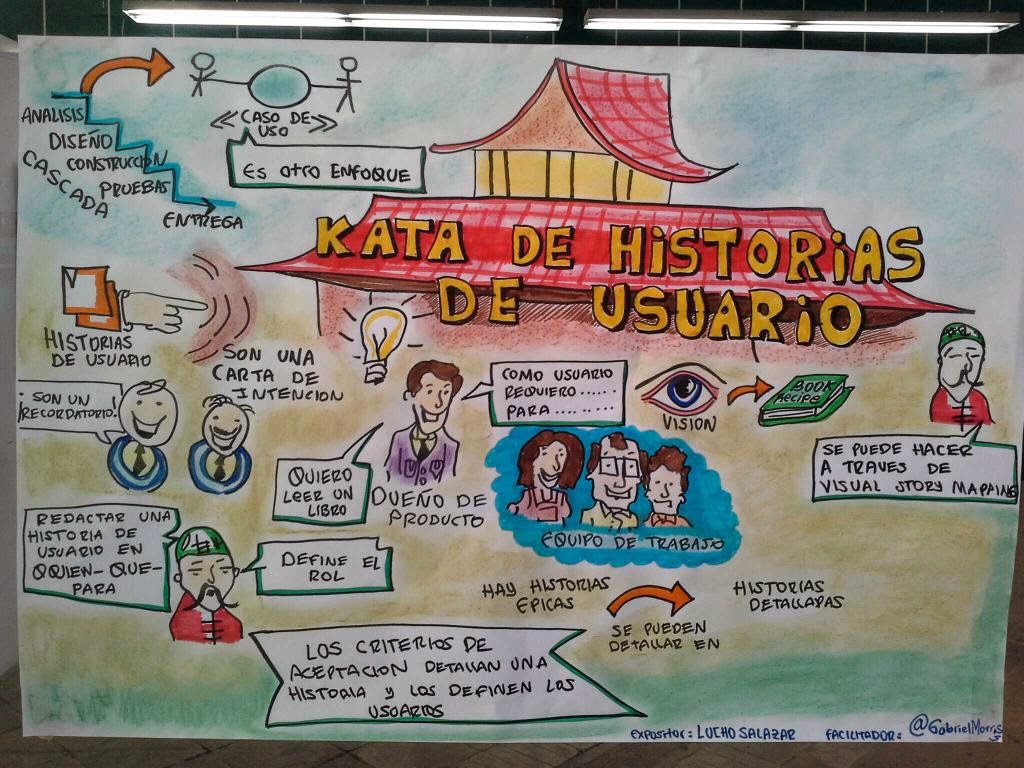 ANALISIS
DISEÑO
CONSTRUCCION
PRUEBAS
ENTREGA
CASCADA
<<CASO DE
USO>>
ES OTRO ENFOQUE
KATA DE HISTORIAS
DE USUARIO
HISTORIAS
DE USUARIO
SON UNA
CARTA DE
INTENCION
¡SON UN
RECORDATORIO!
QUIERO
LEER UN
LIBRO
DUEÑO DE
PRODUCTO
COMO USUARIO
REQUIERO .....
PARA .........
VISION
BOOK
Recipe
EQUIPO DE TRABAJO
SE PUEDE HACER
A TRAVES DE
VISUAL STORY MAPPING
REDACTAR UNA
HISTORIA DE
USUARIO EN
QQUIEN-QUE-
PARA
DEFINE EL
ROL
HAY HISTORIAS
EPICAS
SE PUEDEN
DETALLAR EN
HISTORIAS
DETALLADAS
LOS CRITERIOS DE
ACEPTACION DETALLAN UNA
HISTORIA Y LOS DEFINEN LOS
USUARIOS
EXPOSITOR: LUCHO SALAZAR
FACILITADOR: @GabrielMorris